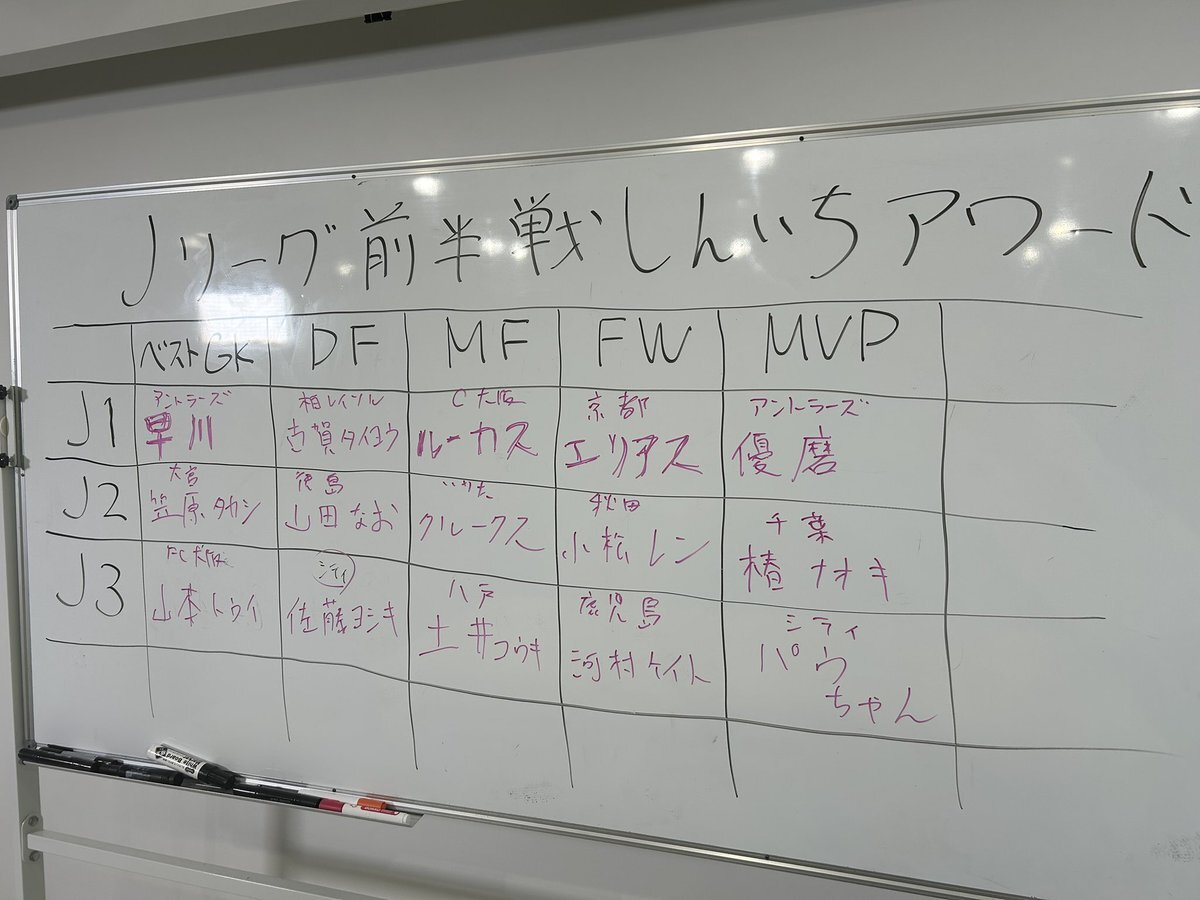 Jリーグ前半戦しんいちアワード
ベストGK DF MF FW MVP
J1
アントラーズ
早川
柏レイソル
古賀タイヨウ
C大阪
ルーカス
京都
エリアス
アントラーズ
優磨
J2
大宮
笠原タカシ
徳島
山田なお
いわた
クルークス
秋田
小松レン
千葉
椿ナオキ
J3
FC大阪
山本トウイ
シティ
佐藤ヨシキ
八戸
土井コウキ
鹿児島
河村ケイト
シティ
パウ
ちゃん